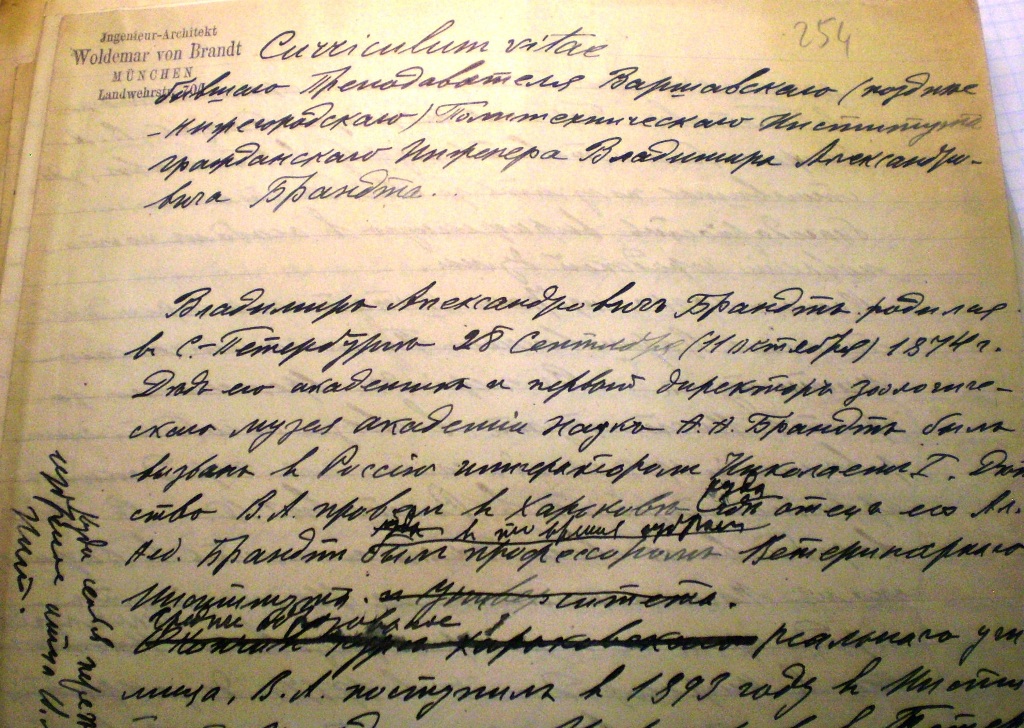 Ingenieur-Architekt
Woldemar von Brandt
MÜNCHEN
Landwehrstr.
254
Curriculum vitae
бывшаго Преподавателя Варшавскаго (позднее
-Нижегородскаго) Политехническаго Института
гражданскаго Инженера Владимира Александро-
вича Брандта.
Владимиръ Александровичъ Брандтъ родился
в С.-Петербургѣ 28 Сентября (11 октября) 1874 г.
Дѣдъ его академикъ и первый директоръ зоологиче-
скаго музея академіи Наукъ А. А. Брандтъ былъ
вызванъ в Россію императоромъ Николаемъ I. Дѣт
ство В. А. провелъ в Харьковѣ, куда отецъ его Ал.
Ал. Брандтъ былъ профессоромъ Ветеринарнаго
Института. и Университета.
реальнаго учи
лища, В. А. поступилъ в 1893 году в Инсти
куда семья